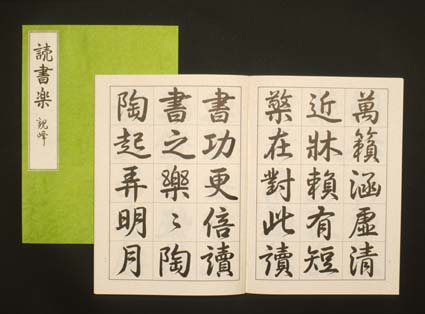 読書楽
観峰
萬籟涵虚清
近牀頼有短
檠在對此讀
書功更倍讀
書之樂〻陶
陶起弄明月